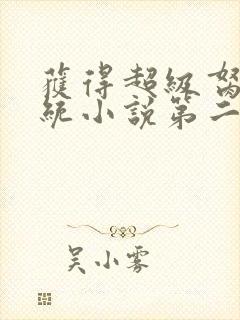 獲得超級
統小說第二
吴小雾